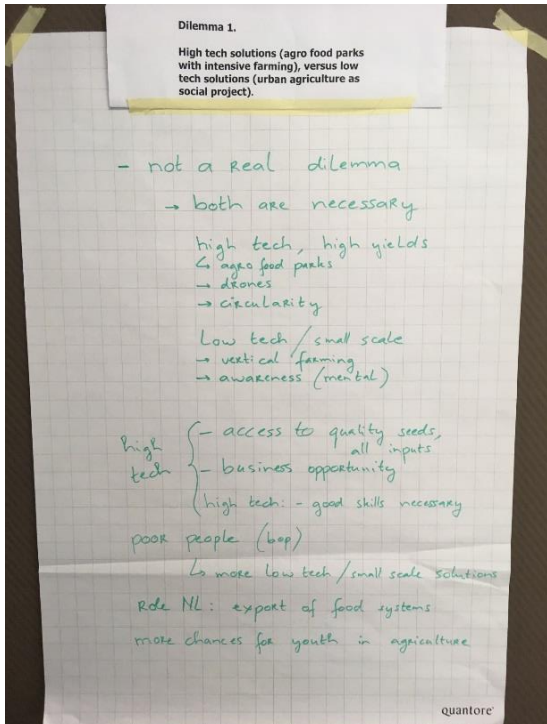 Dilemma 1.
High tech solutions (agro food parks
with intensive farming), versus low
tech solutions (urban agriculture as
social project).
- not a Real dilemma
→ both are necessary
high tech, high yields
↳ agro food parks
→ drones
→ circularity
Low tech / small scale
→ vertical farming
→ awareness (mental)
high tech { - access to quality seeds,
all inputs
- business opportunity
high tech: - good skills necessary
poor people (bop)
↳ more low tech / small scale solutions
Role NL: export of food systems
more chances for youth in agriculture
quantore